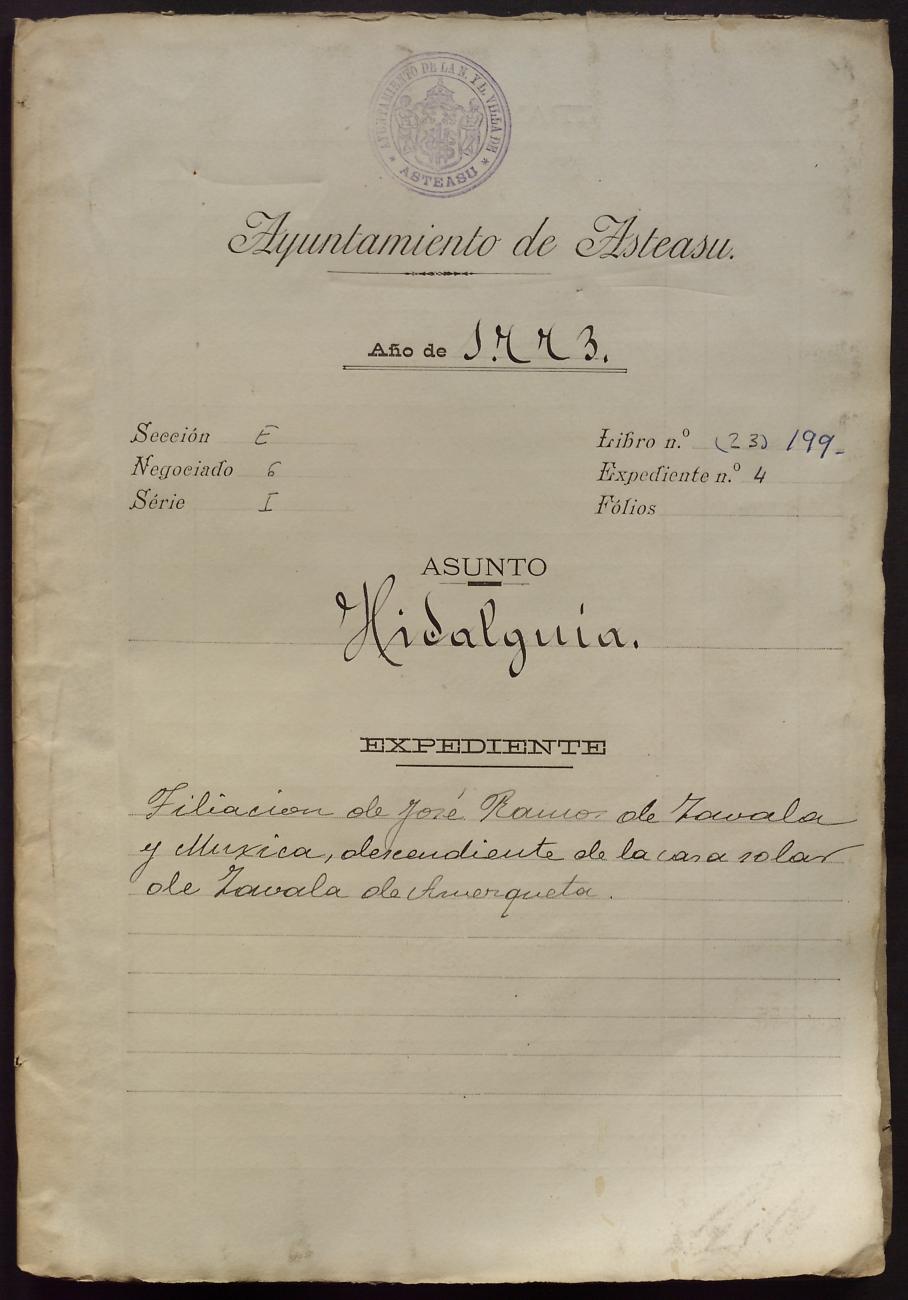 AYUNTAMIENTO DE LA N. Y L. VILLA DE
* ASTEASU *
Ayuntamiento de Asteasu.
Año de 1773.
Sección E
Negociado 6
Série I
Libro n.º (23) 199-
Expediente n.º 4
Fólios
ASUNTO
Hidalguía.
EXPEDIENTE
Filiacion de José Ramos de Zavala
y Muxica, descendiente de la casa solar
de Zavala de Amezqueta.